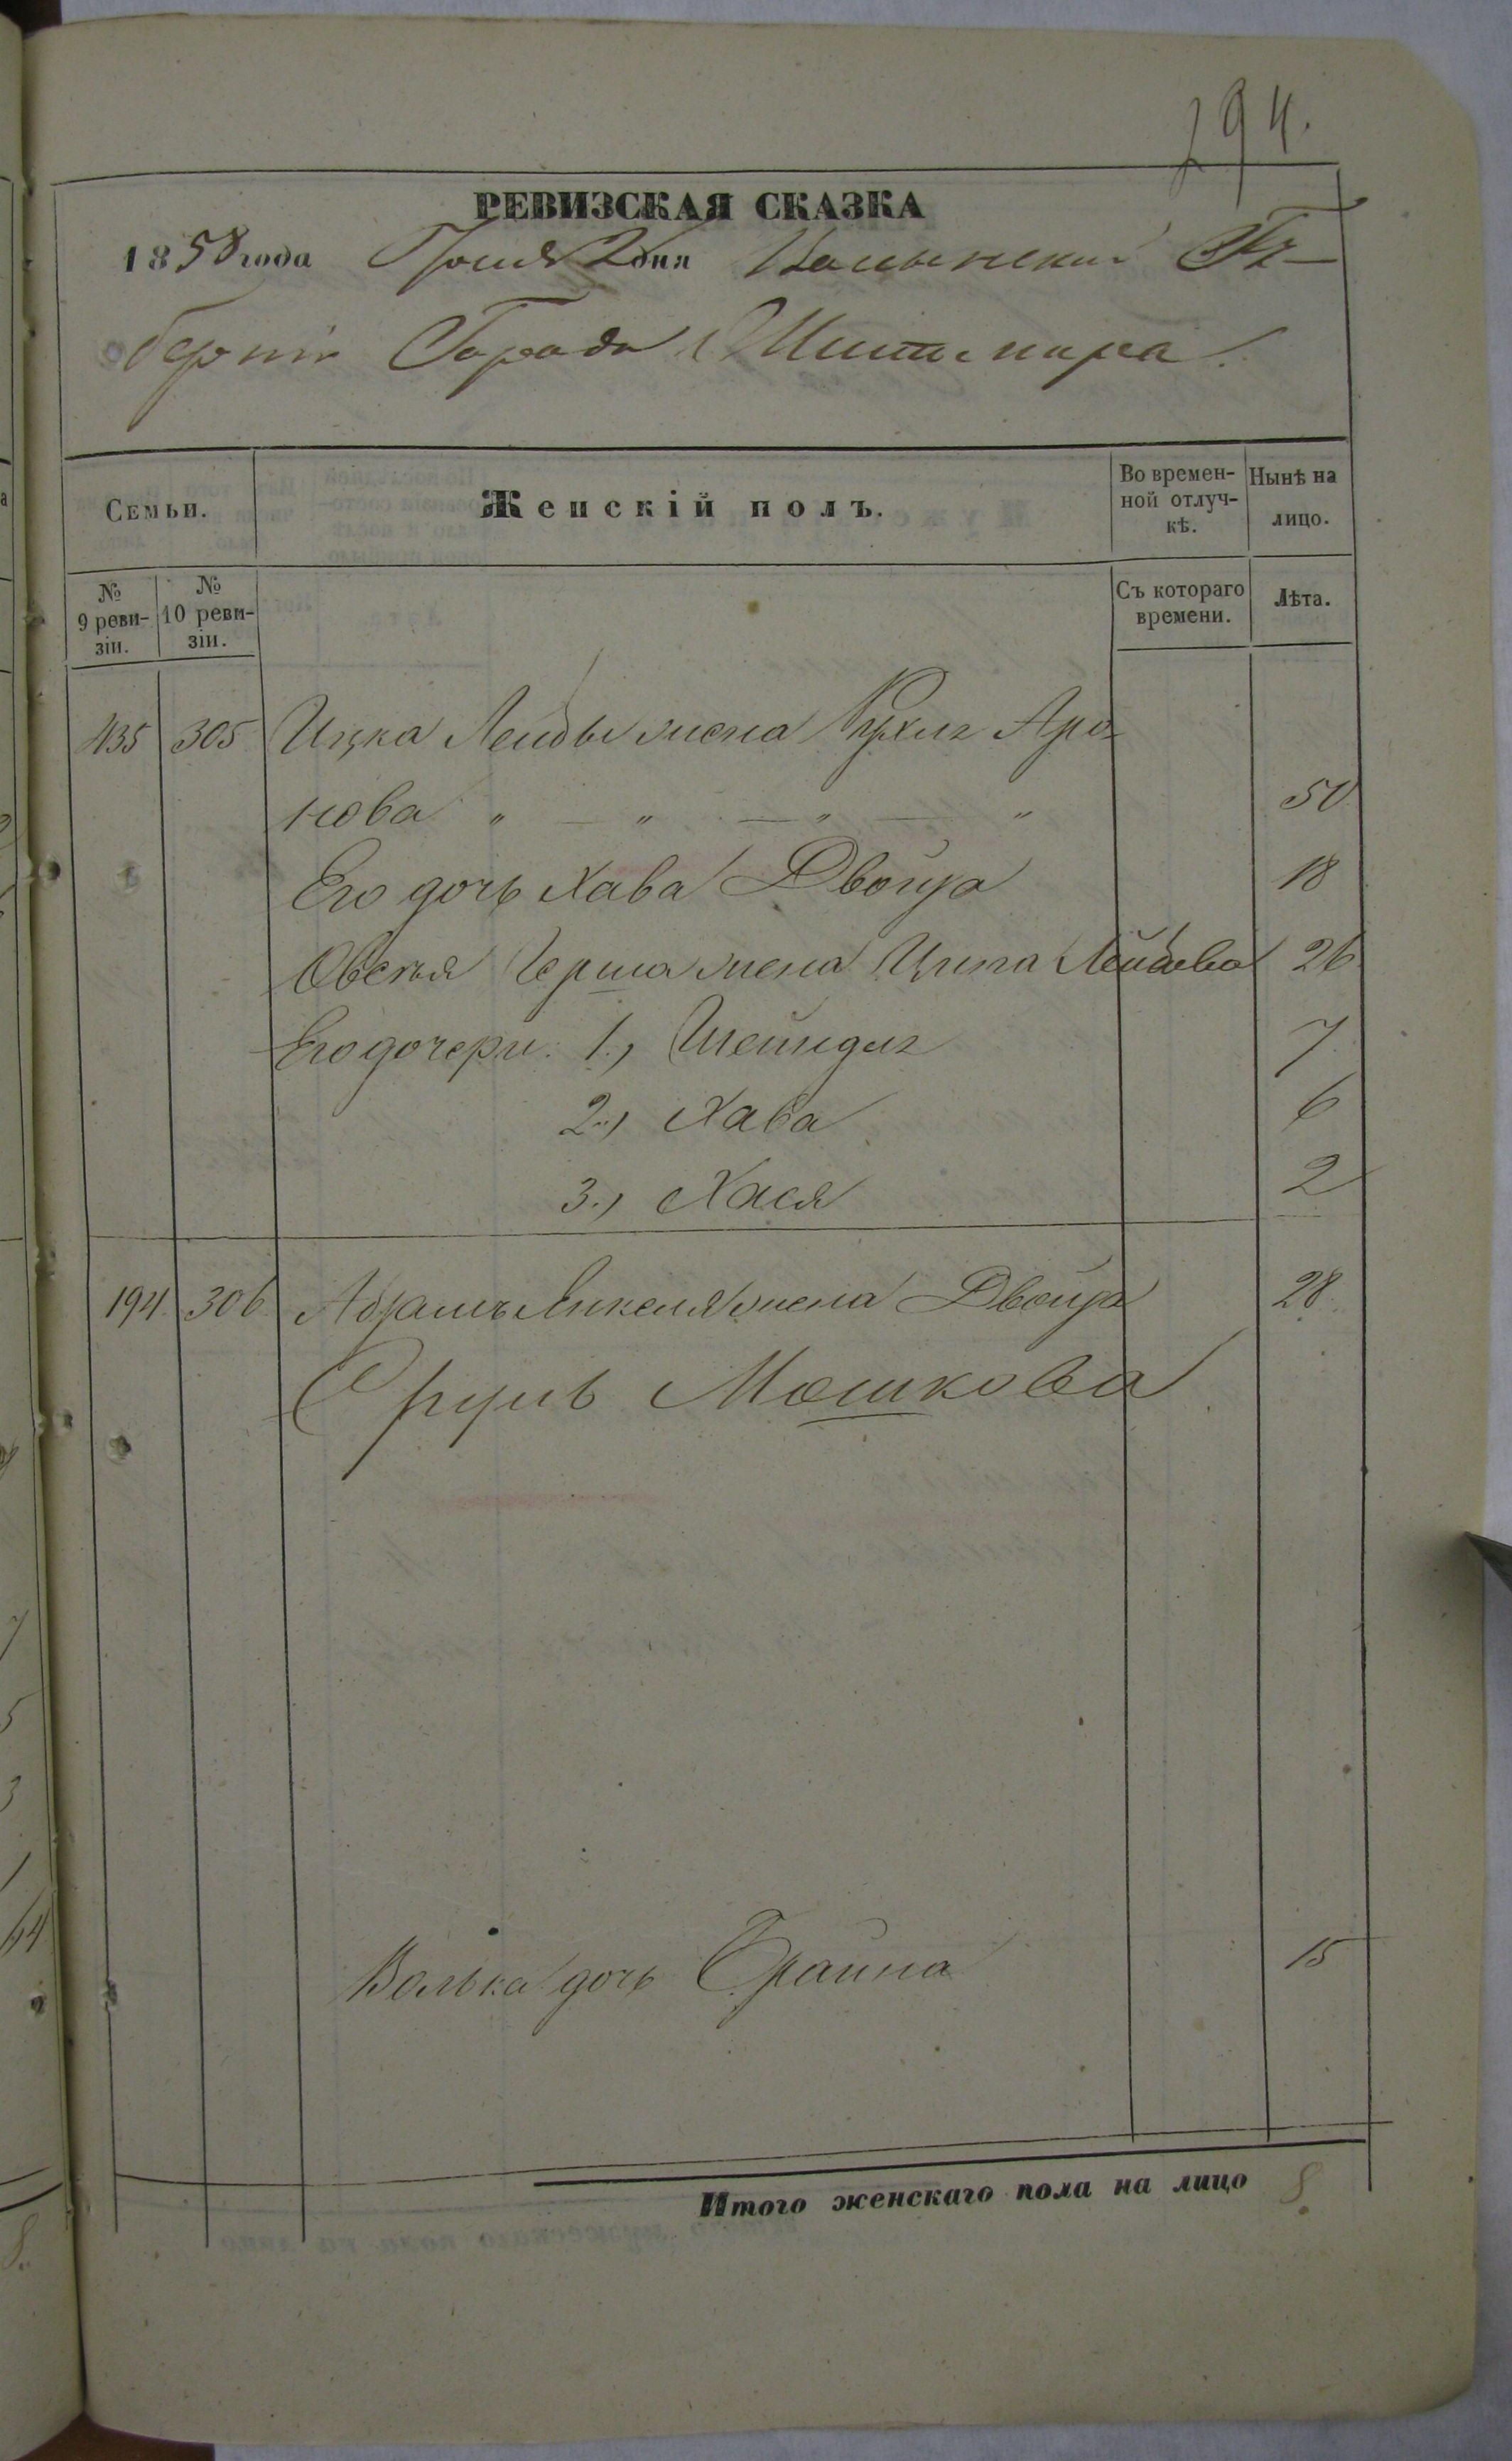 194.
РЕВИЗСКАЯ СКАЗКА
1858 года Іюня 2 дня Волынской Гу-
берніи Города Житомира.
Семьи.
Женскій полъ.
Во времен-
ной отлуч-
кѣ.
Нынѣ на
лицо.
№
9 реви-
зіи.
№
10 реви-
зіи.
Съ котораго
времени.
Лѣта.
435 305 Ицка Лейбы жена Рухля Аро-
нова " — " — " — " 50
Его дочь Хава Двойра 18
Овсея Герша жена Ципа Лейбова 26
Его дочери: 1., Шейндля 7
2., Хава 6
3., Хася 2
194. 306 Абрамъ Янкеля жена Двойра 28.
Сруль Мошкова
Волька дочь Брайна 15
Итого женскаго пола на лицо 8.